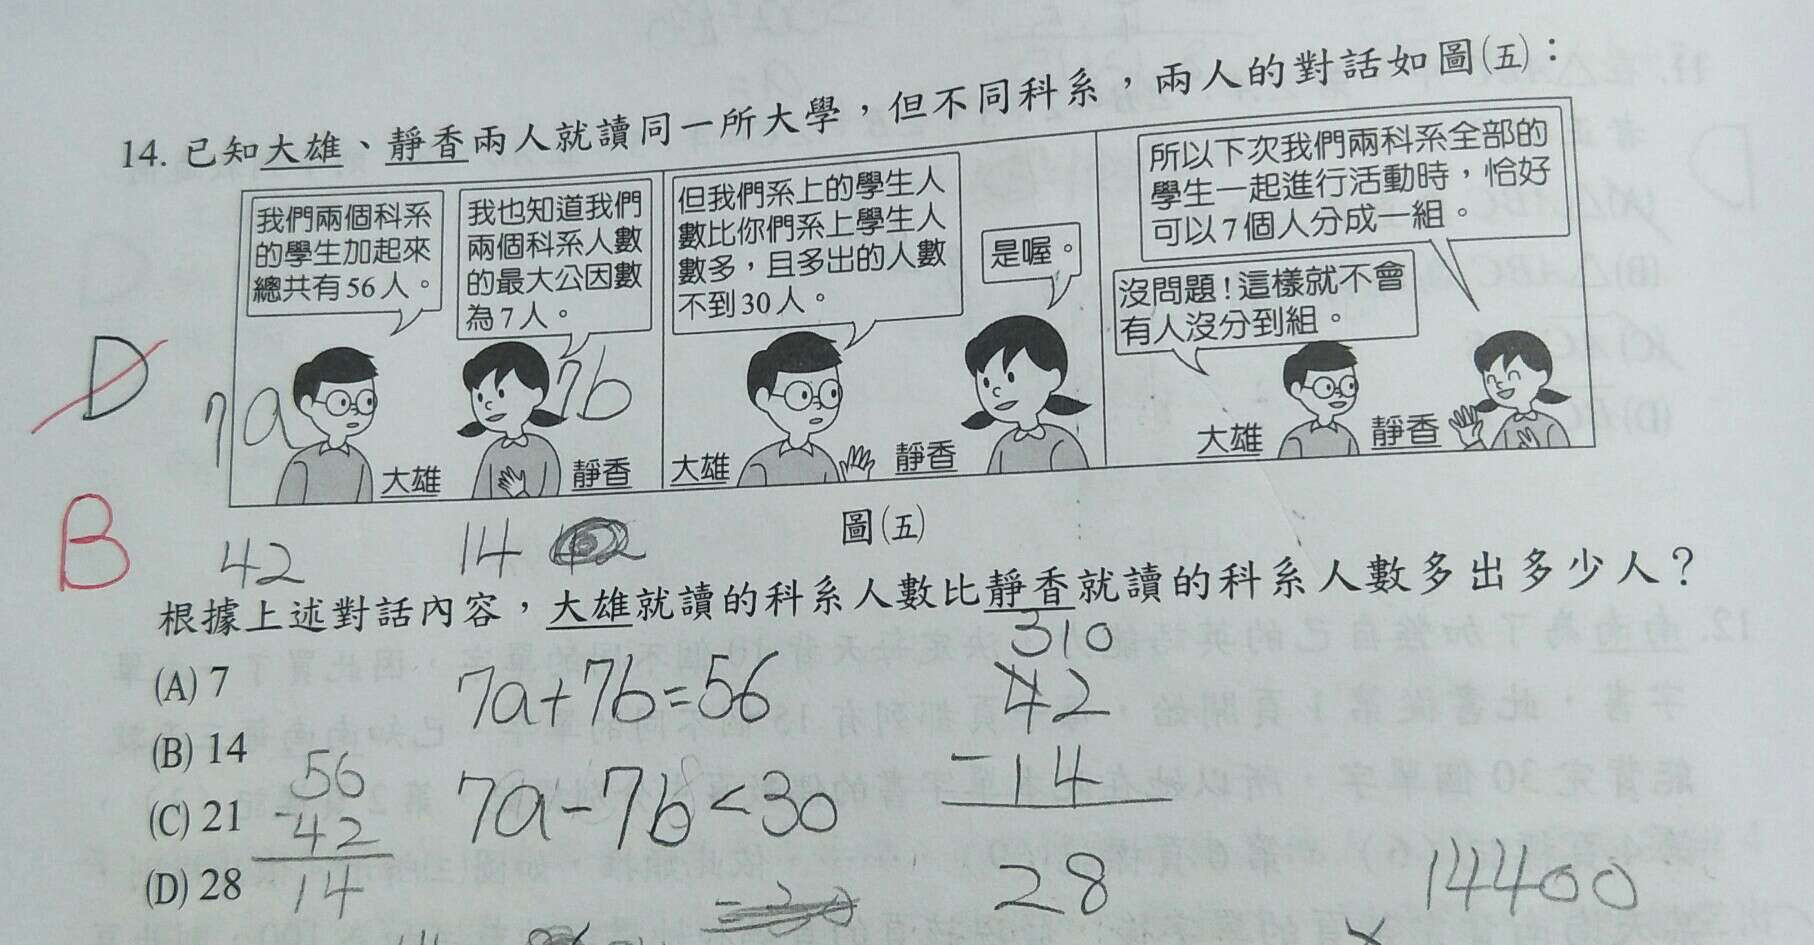 14. 已知大雄、靜香兩人就讀同一所大學，但不同科系，兩人的對話如圖(五)：
我們兩個科系
的學生加起來
總共有56人。
我也知道我們
兩個科系人數
的最大公因數
為7人。
但我們系上的學生人
數比你們系上學生人
數多，且多出的人數
不到30人。
是喔。
所以下次我們兩科系全部的
學生一起進行活動時，恰好
可以7個人分成一組。
沒問題！這樣就不會
有人沒分到組。
D
7a
7b
大雄
靜香
大雄
靜香
大雄
靜香
B
圖(五)
42
14
根據上述對話內容，大雄就讀的科系人數比靜香就讀的科系人數多出多少人？
(A) 7
(B) 14
(C) 21
(D) 28
56
-42
14
7a+7b=56
7a-7b<30
310
42
-14
28
14400